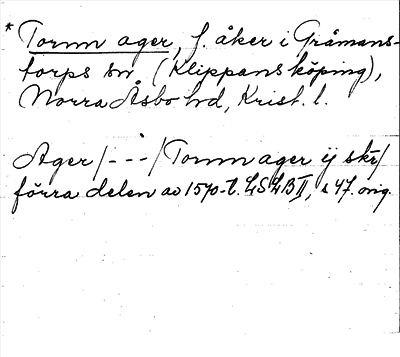 * Tornn ager, f. åker i Gråmans-
torps sn (Klippans köping),
Norra Åsbo hd, Krist. l.
Ager /- - -/ Tornn ager ij skr/
förra delen av 1570-t. LSLB II, s 47. orig.